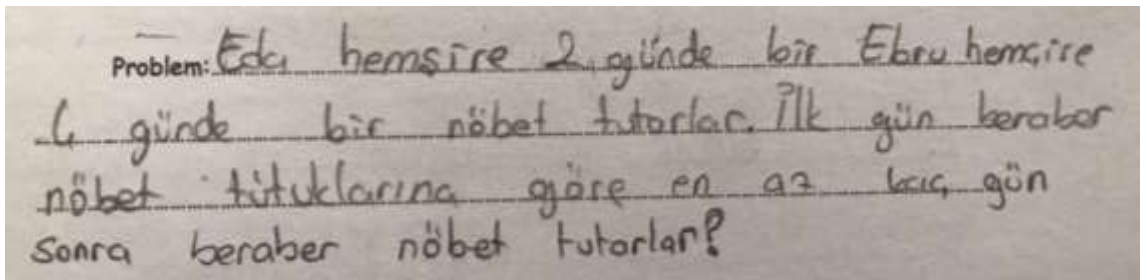 Problem: Eda hemşire 2 günde bir Ebru hemşire
4 günde bir nöbet tutarlar. İlk gün beraber
nöbet tutuklarına göre en az kaç gün
sonra beraber nöbet tutarlar?